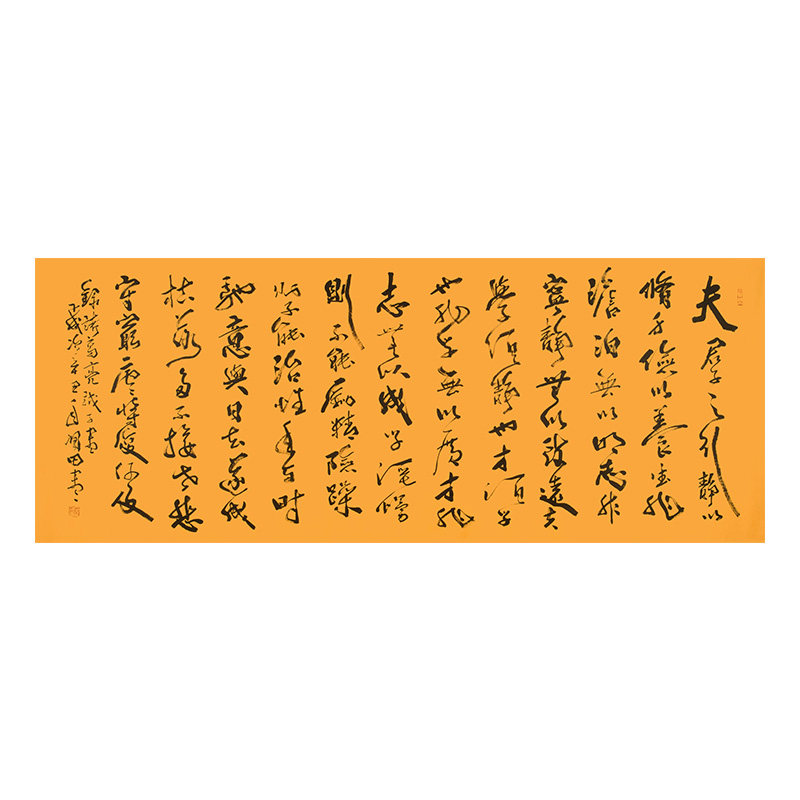 夫君子之行靜以
脩身儉以養德非
澹泊無以明志非
寧靜無以致遠夫
學須靜也才須學
也非學無以廣才非
志無以成學滔慢
則不能勵精險躁
則不能治性年與時
馳意與日去遂成
枯落多不接世悲
守窮廬將復何及
錄諸葛亮誡子書
歲次辛丑年月